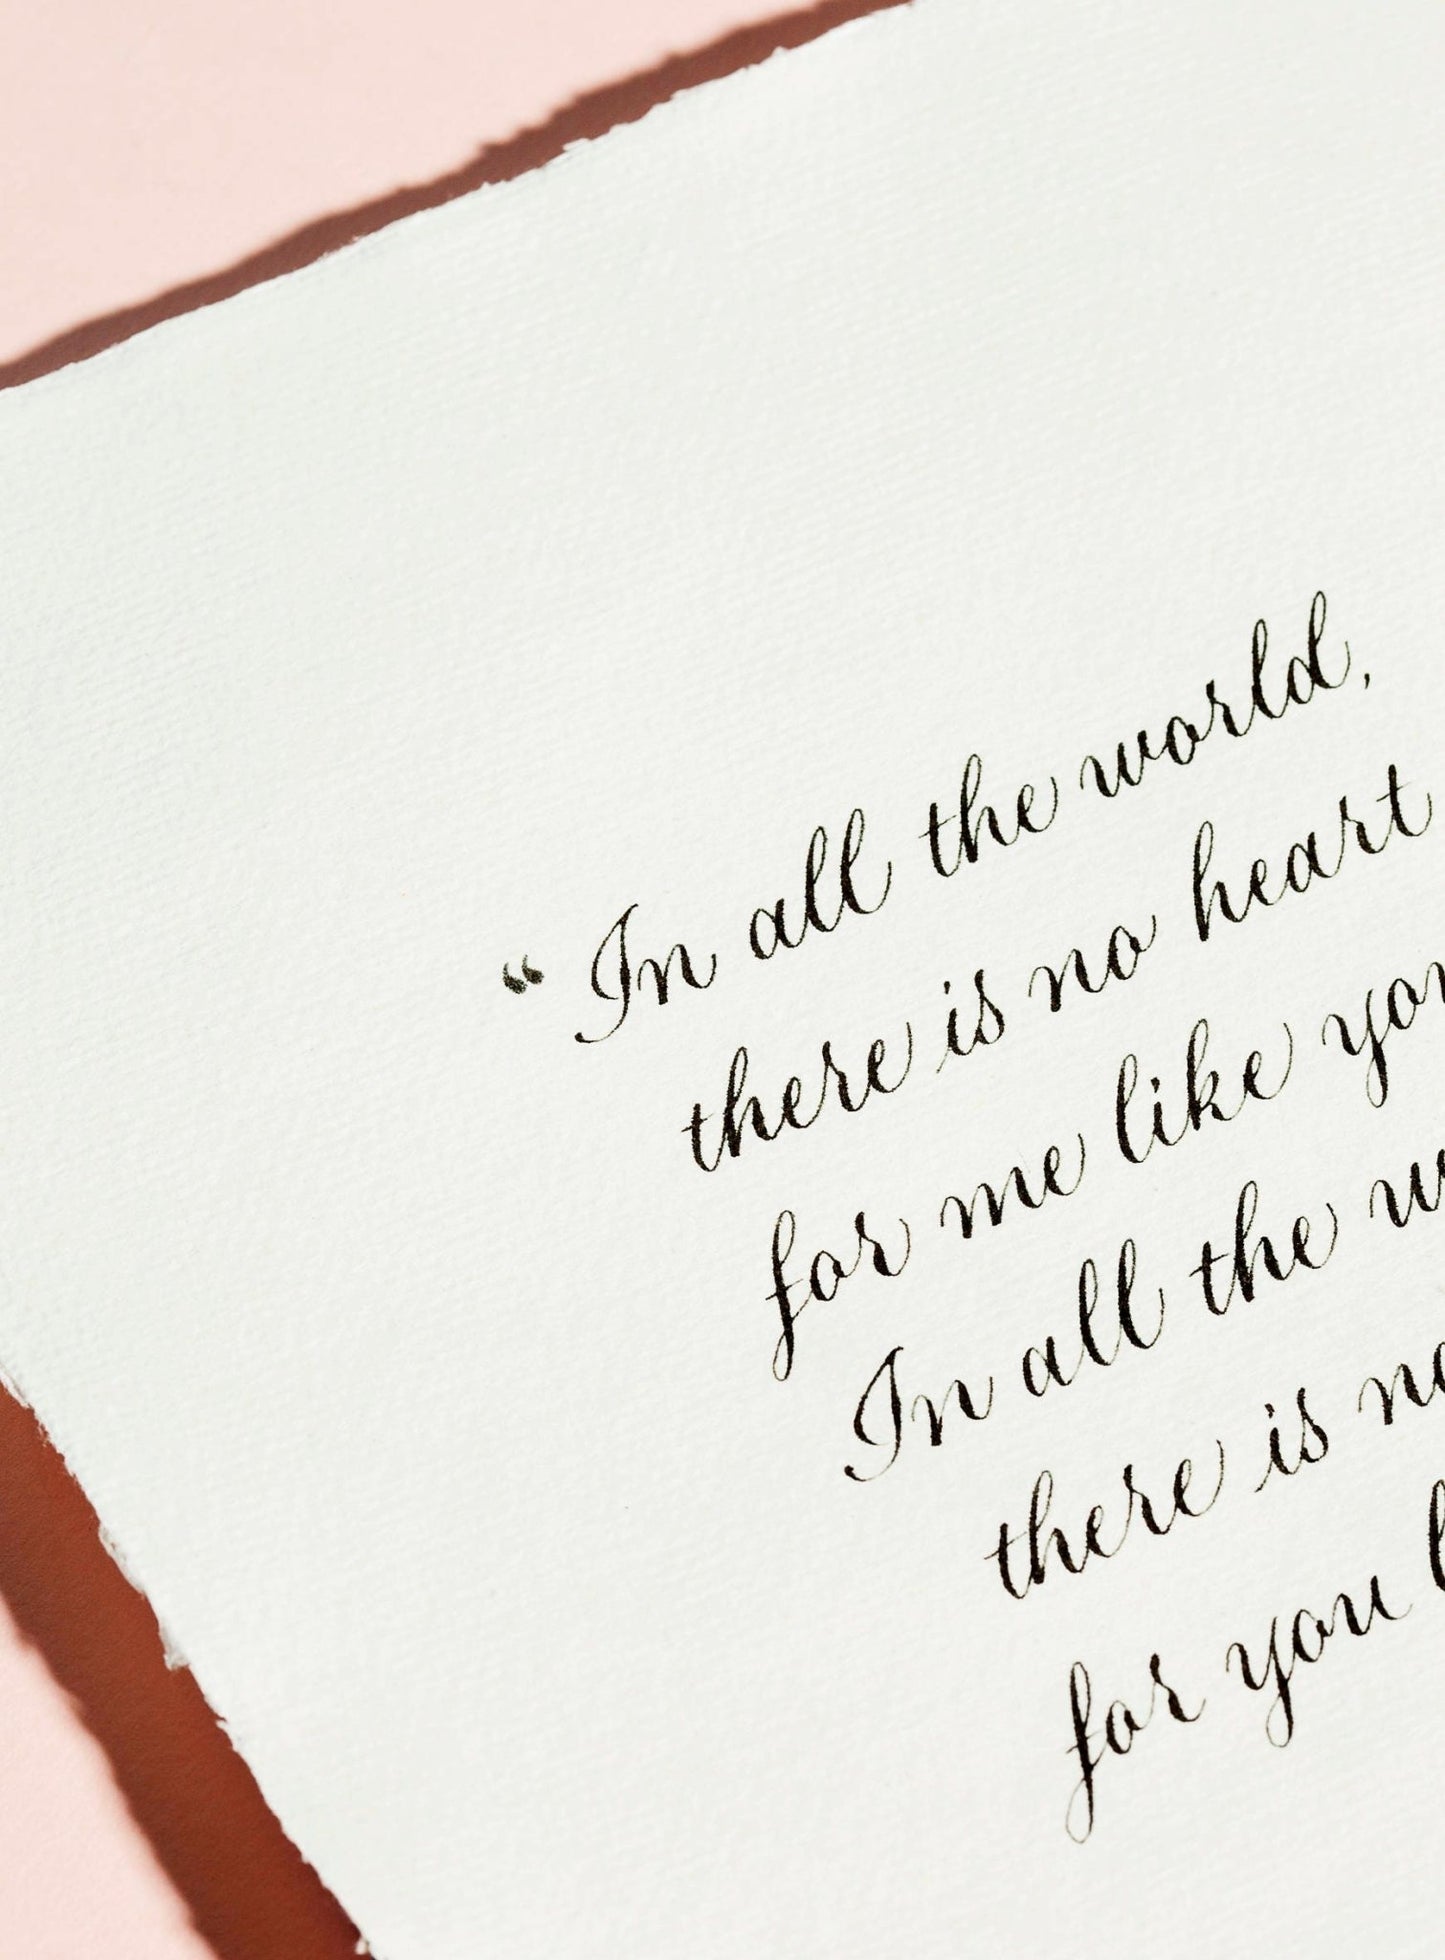 “In all the world,
there is no heart
for me like you
In all the w
there is no
for you l